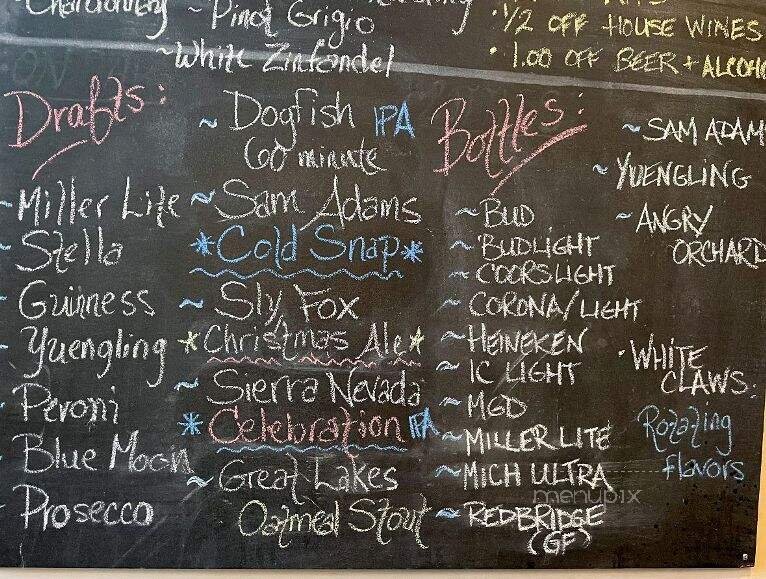 Chardonnay ~ Pinot Grigio
~White Zinfandel
• 1/2 OFF HOUSE WINES
• 1.00 OFF BEER + ALCOHO
Drafts:
~Miller Lite
~Stella
~Guinness
~Yuengling
~Peroni
~Blue Moon
~Prosecco
~ Dogfish IPA
60 minute
~Sam Adams
*Cold Snap*
~ Sly Fox
*Christmas Ale*
~Sierra Nevada
*Celebration IPA
~Great Lakes
Oatmeal Stout
Bottles:
~BUD
~BUDLIGHT
~COORSLIGHT
~CORONA/LIGHT
~HEINEKEN
~IC LIGHT
~MGD
~MILLER LITE
~MICH ULTRA
~REDBRIDGE
(GF)
~SAM ADAM
~YUENGLING
~ANGRY
ORCHARD
•WHITE
CLAWS
Rotating
flavors
menupix